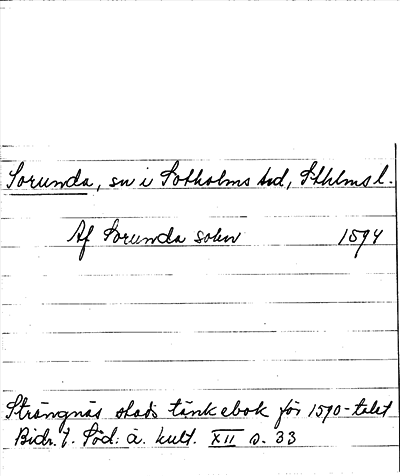 Sorunda, sn i Sotholms hd, Sthlms l.
Af Sorunda sokn 1594
Strängnäs stads tänkebok för 1590-talet
Bidr. t. Söd: ä. kult. XII s. 33